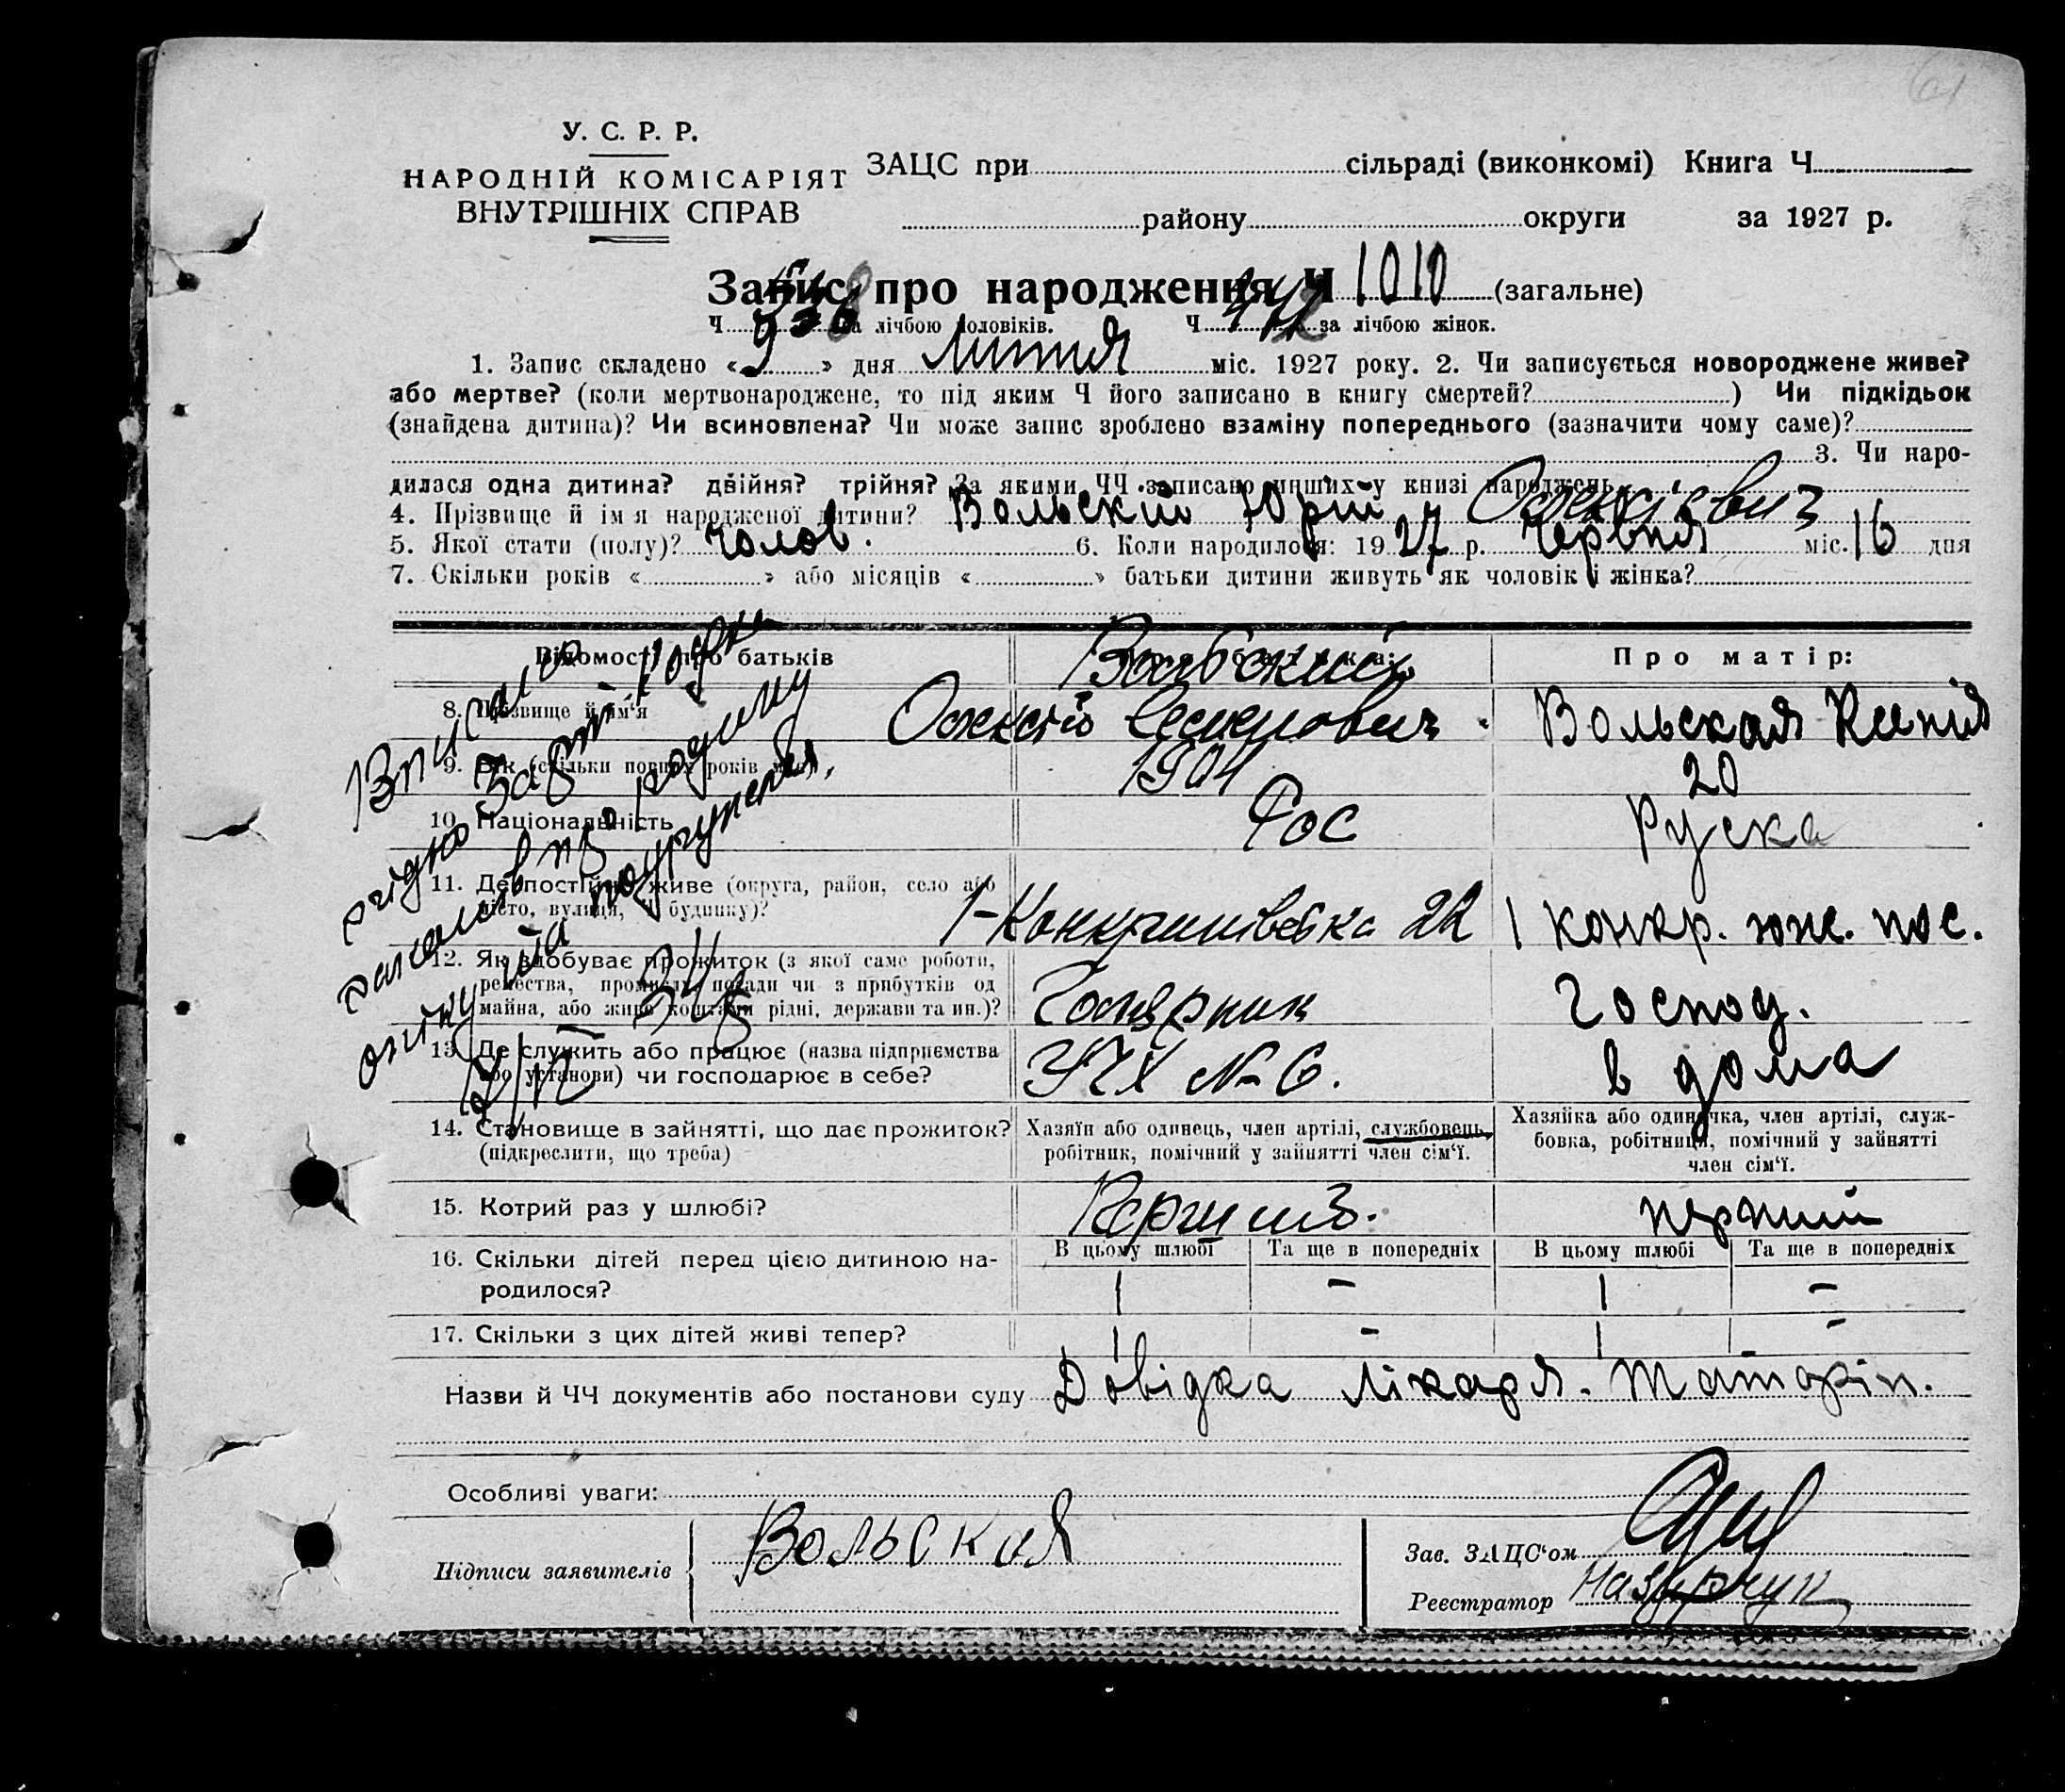 61
У. С. Р. Р.
НАРОДНІЙ КОМІСАРІЯТ
ВНУТРІШНІХ СПРАВ
ЗАЦС при сільраді (виконкомі) Книга Ч
району округи за 1927 р.
Запис про народження Ч 1010 (загальне)
Ч за лічбою чоловіків. Ч за лічбою жінок.
1. Запис складено « 9 » дня Липня міс. 1927 року. 2. Чи записується новороджене живе?
або мертве? (коли мертвонароджене, то під яким Ч його записано в книгу смертей? ) Чи підкідьок
(знайдена дитина)? Чи всиновлена? Чи може запис зроблено взаміну попереднього (зазначити чому саме)?
3. Чи наро-
дилася одна дитина? двійня? трійня? За якими ЧЧ записано инших у книзі народжень
4. Прізвище й ім'я народженої дитини? Вольский Юрій
5. Якої стати (полу)? Чолов. 6. Коли народилося: 19 27 р. Червня міс. 16 дня
7. Скільки років « » або місяців « » батьки дитини живуть як чоловік і жінка?
Відомості про батьків Про матір:
Вольский
8. Прізвище й ім'я Вольская Ксенія
9. Вік (скільки повних років має) 1904 20
10. Національність Рос Руска
11. Де постійно живе (округа, район, село або
місто, вулиця, Ч будинку)? 22 1 конкр. юж. пос.
12. Як здобуває прожиток (з якої саме роботи,
ремества, промислу, посади чи з прибутків од
майна, або живе коштами рідні, держави та ин.)? Господ.
13. Де служить або працює (назва підприємства
або установи) чи господарює в себе? № 6. в дома
14. Становище в зайнятті, що дає прожиток?
(підкреслити, що треба)
Хазяїн або одинець, член артілі, службовець,
робітник, помічний у зайнятті член сім'ї.
Хазяйка або одиначка, член артілі, служ-
бовка, робітниця, помічний у зайнятті
член сім'ї.
15. Котрий раз у шлюбі? перший
16. Скільки дітей перед цією дитиною на-
родилося?
В цьому шлюбі Та ще в попередніх В цьому шлюбі Та ще в попередніх
1 – 1 –
17. Скільки з цих дітей живі тепер? 1 – 1 –
Назви й ЧЧ документів або постанови суду Довідка лікаря.
Особливі уваги:
Підписи заявителів Вольская
Зав. ЗАЦС'ом
Реєстратор Назарчук